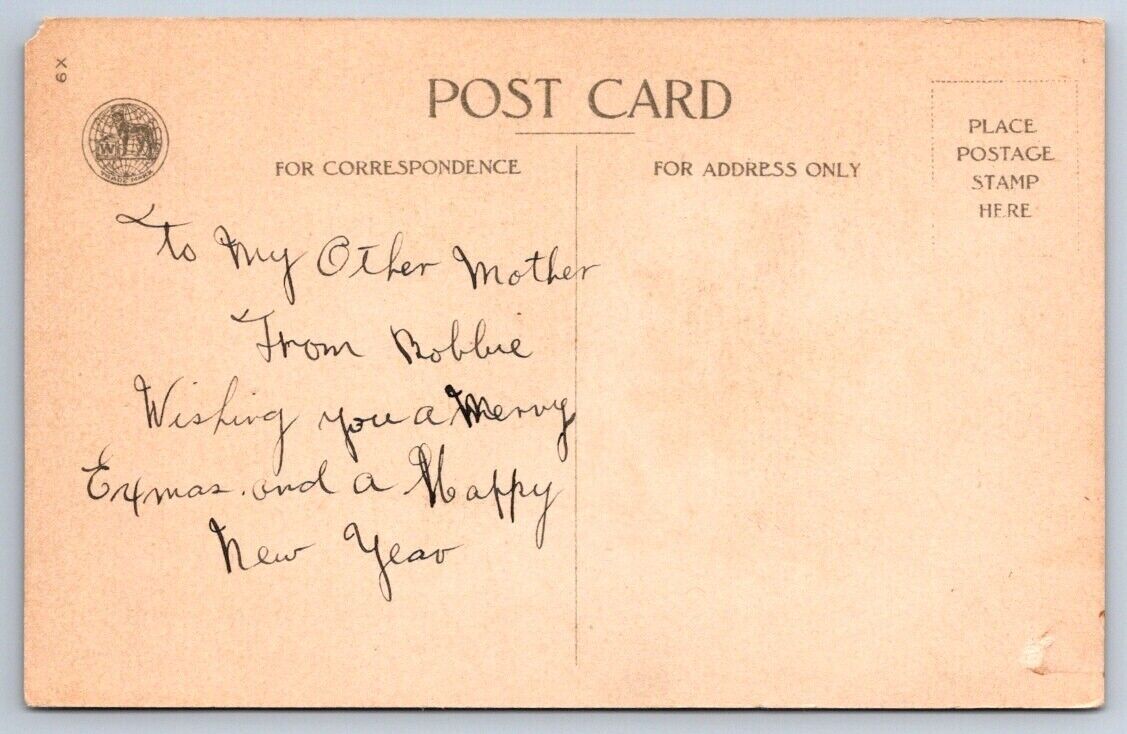 6X
POST CARD
FOR CORRESPONDENCE
FOR ADDRESS ONLY
PLACE
POSTAGE
STAMP
HERE
W
TRADE MARK
To My Other Mother
From Bobbie
Wishing you a Merry
Exmas. and a Happy
New Year